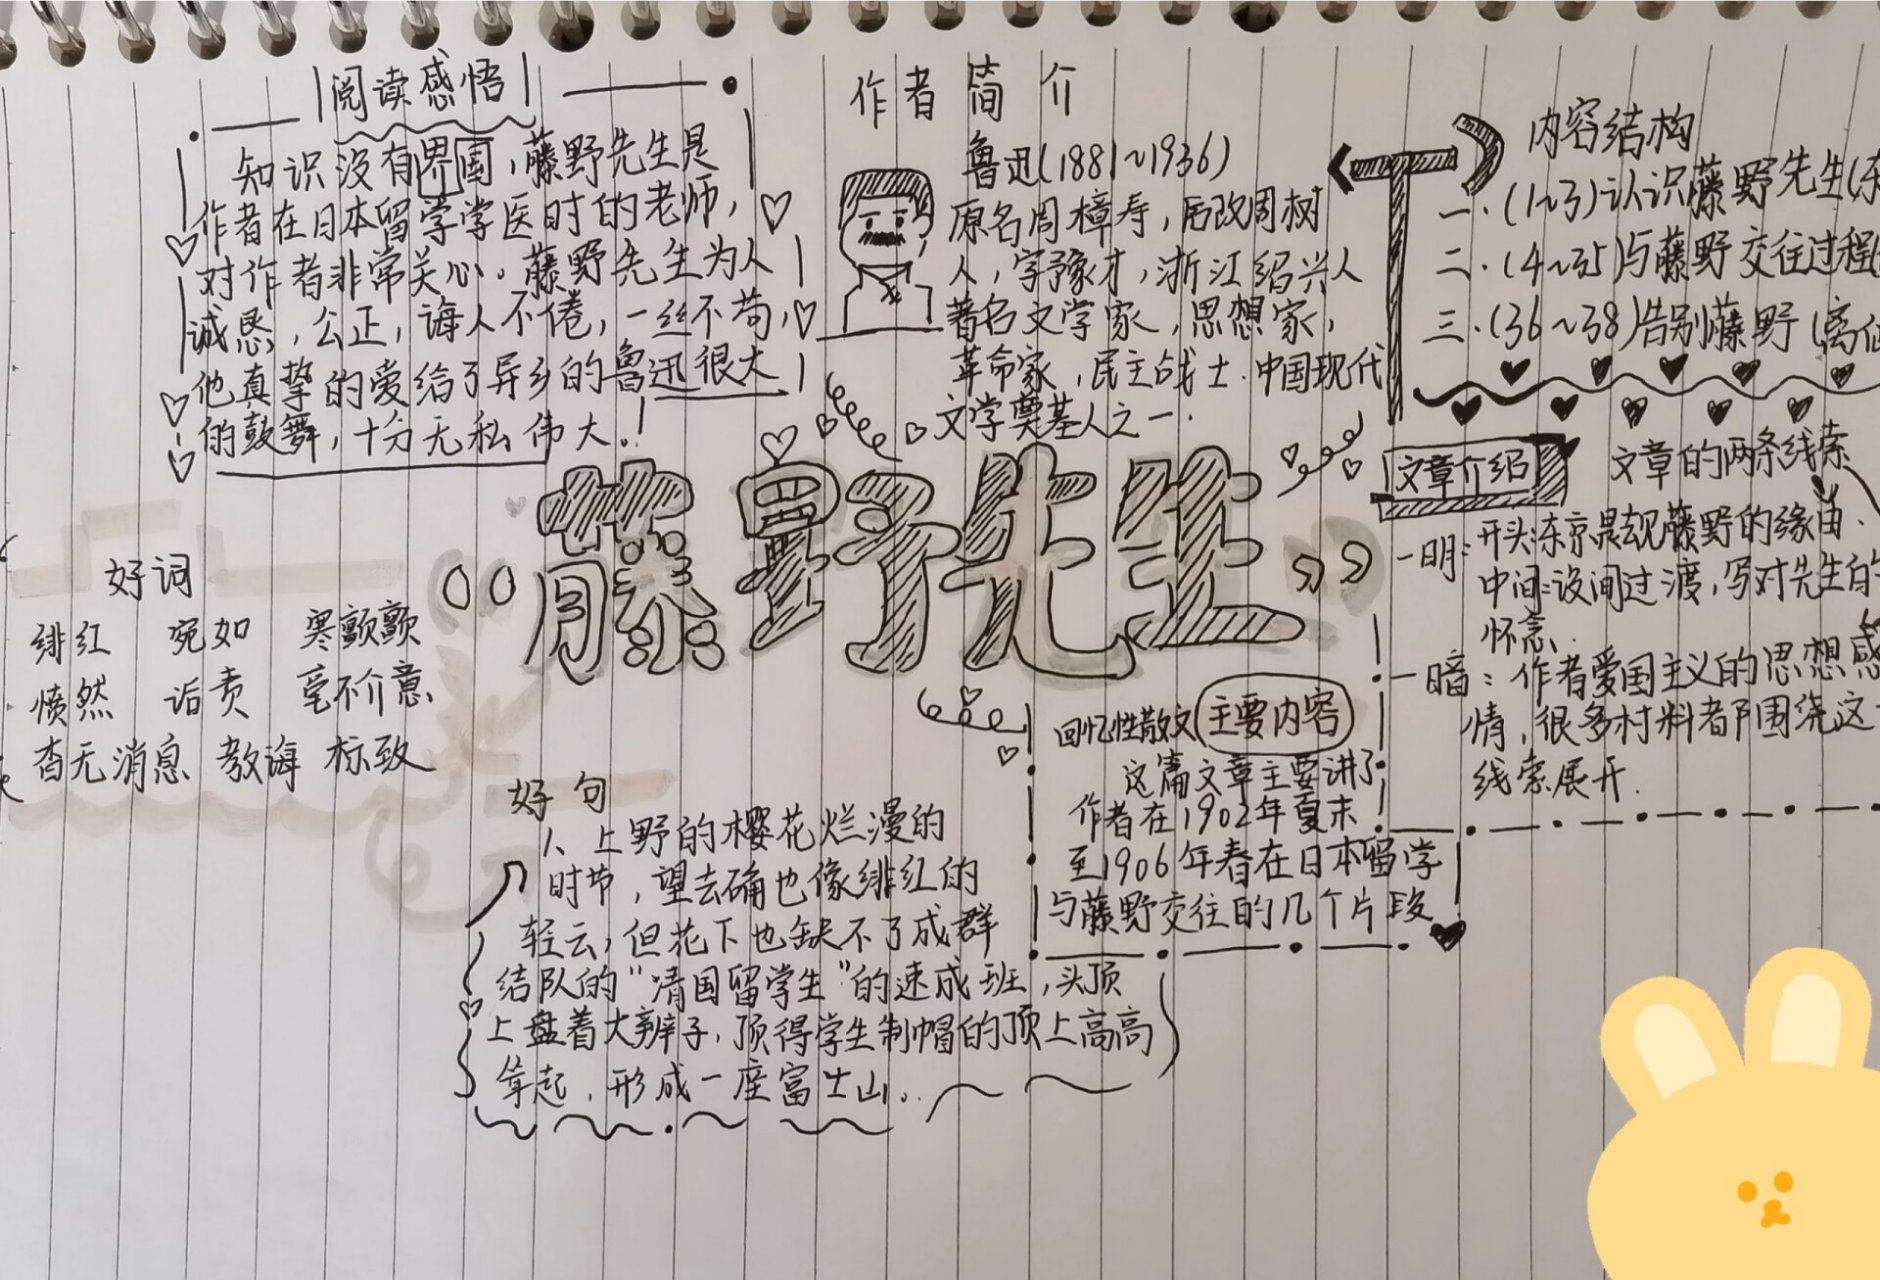 阅读感悟
知识没有界围,藤野先生是
作者在日本留学学医时的老师,
对作者非常关心。藤野先生为人
诚恳,公正,诲人不倦,一丝不苟,
他真挚的爱给了异乡的鲁迅很大
的鼓舞,十分无私伟大。
作者简介
鲁迅(1881~1936)
原名周樟寿,后改周树
人,字豫才,浙江绍兴人
著名文学家,思想家,
革命家,民主战士.中国现代
文学奠基人之一.
内容结构
一.(1~3)认识藤野先生(东
二.(4~35)与藤野交往过程(
三.(36~38)告别藤野(离仙
“藤野先生”
文章介绍 文章的两条线索
一明:开头:东京是去见藤野的缘由.
中间:设间过渡,写对先生的
怀念.
一暗:作者爱国主义的思想感
情,很多材料都围绕这一
线索展开.
好词
绯红 宛如 寒颤颤
愤然 诟责 毫不介意
杳无消息 教诲 标致
回忆性散文 主要内容
这篇文章主要讲了
作者在1902年夏末
至1906年春在日本留学
与藤野交往的几个片段
好句
1、上野的樱花烂漫的
时节,望去确也像绯红的
轻云,但花下也缺不了成群
结队的“清国留学生”的速成班,头顶
上盘着大辫子,顶得学生制帽的顶上高高
耸起,形成一座富士山。